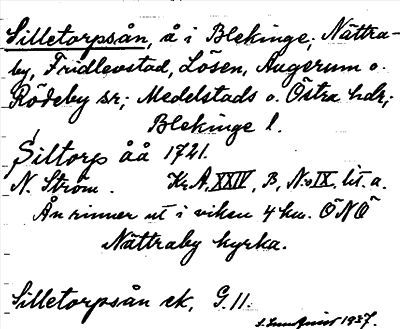 Silletorpsån, å i Blekinge; Nättra-
by, Fridlevstad, Lösen, Augerum o.
Rödeby sr; Medelstads o. Östra hdr;
Blekinge l.
Siltorp åå 1721.
N. Ström. Kr.A. XXIV, B, N:o IX. lit. a.
Ån rinner ut i viken 4 km. ÖNÖ
Nättraby kyrka.
Silletorpsån ek, G. 11.
S. Lundquist 1937.